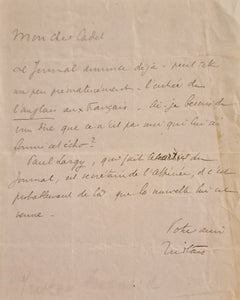 Mon cher Cadet
Le Journal annonce déjà - peut-être
un peu prématurément - l'entrée de
l'anglais aux Français. Ai-je besoin de
vous dire que ce n'est pas moi qui lui ai
fourni cet écho?
Paul Largy, qui fait le du
Journal, est secrétaire de l'affaire, et c'est
probablement de là que la nouvelle lui est
venue.
Votre ami
Tristan